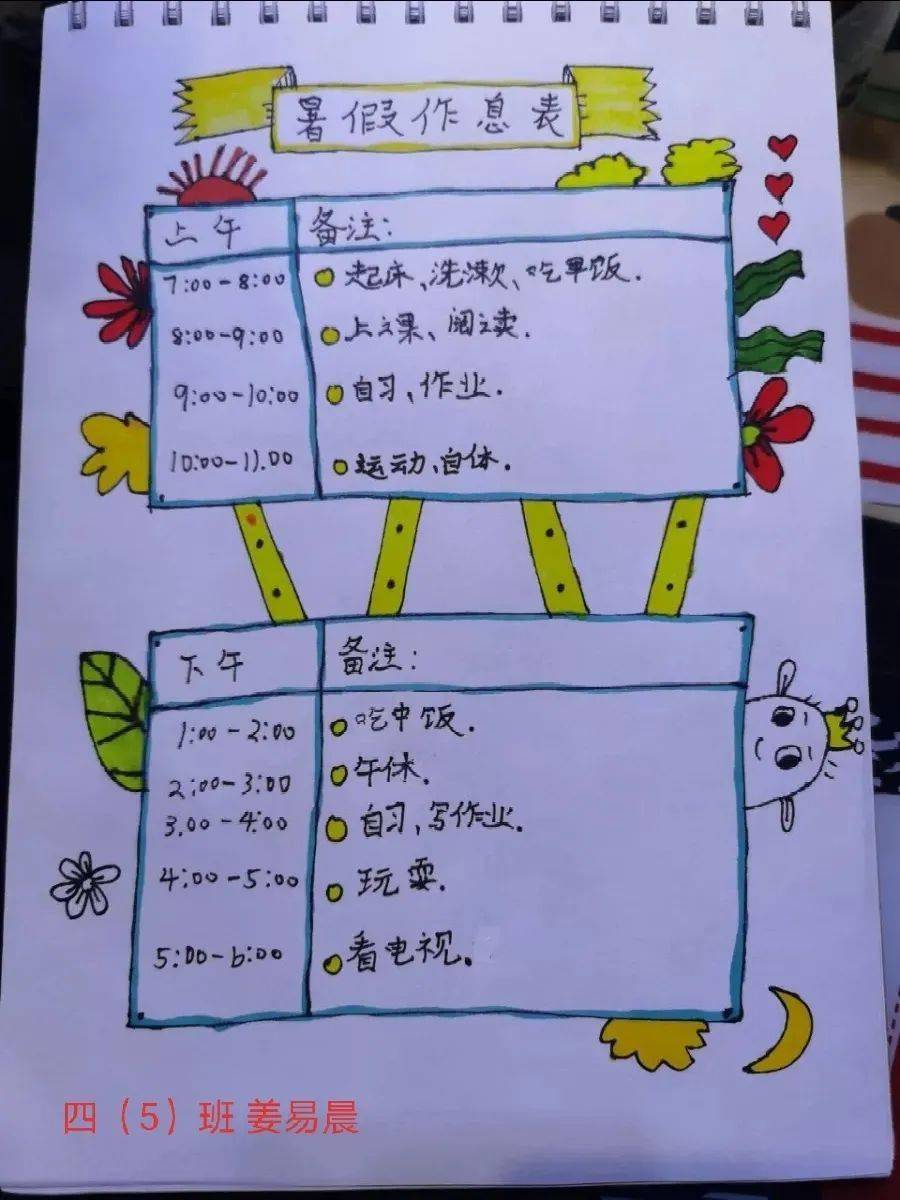 暑假作息表
上午 备注:
7:00-8:00 起床、洗漱、吃早饭.
8:00-9:00 上课、阅读.
9:00-10:00 自习、作业.
10:00-11.00 运动、自休.
下午 备注:
1:00-2:00 吃中饭.
2:00-3:00 午休.
3.00-4:00 自习、写作业.
4:00-5:00 玩耍.
5:00-6:00 看电视。
四（5）班 姜易晨